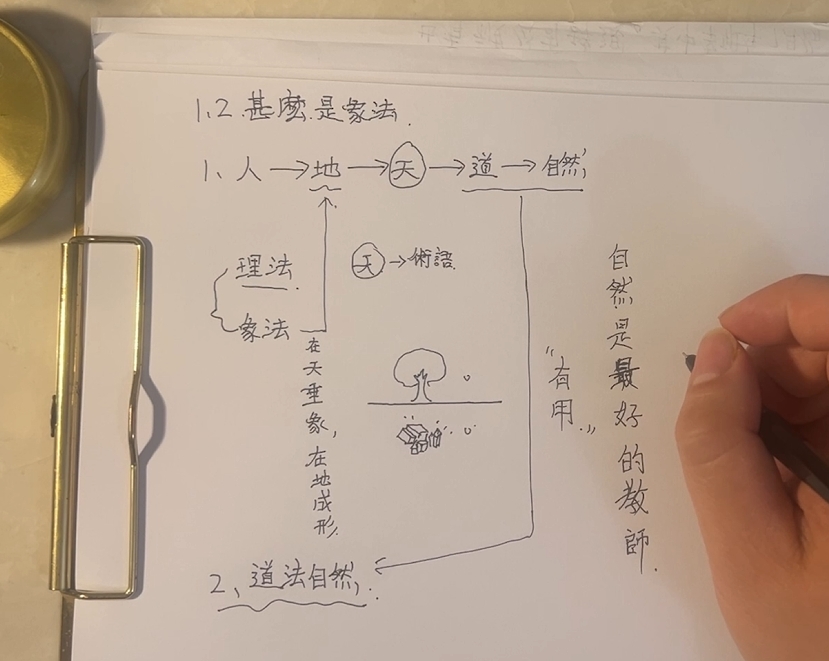 1.2.甚麼是象法.
1、人→地→天→道→自然,
理法
天→術語.
象法
在天垂象,在地成形.
"有用."
自然是最好的教師.
2、道法自然,.